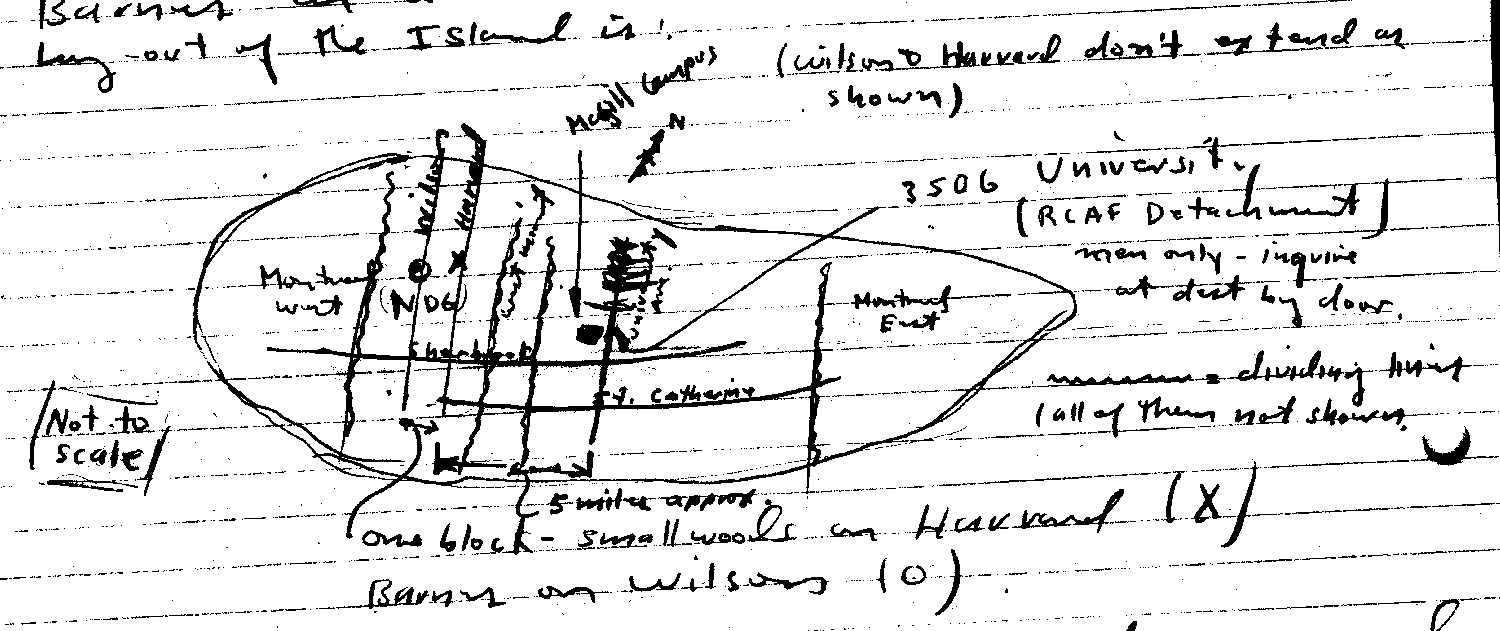 Barnes
lay-out of the Island is:
(Wilson & Harvard don't extend as
shown)
McGill Campus
N
3506 University
(RCAF Detachment)
men only - inquire
at desk by door.
Wilson
Harvard
Montreal
West
(NDG)
University
Montreal
East
Sherbrook
St. Catherine
= dividing lines
(all of them not shown.
Not to
scale
5 miles approx.
one block - Smallwoods on Harvard (X)
Barnes on Wilson (O)